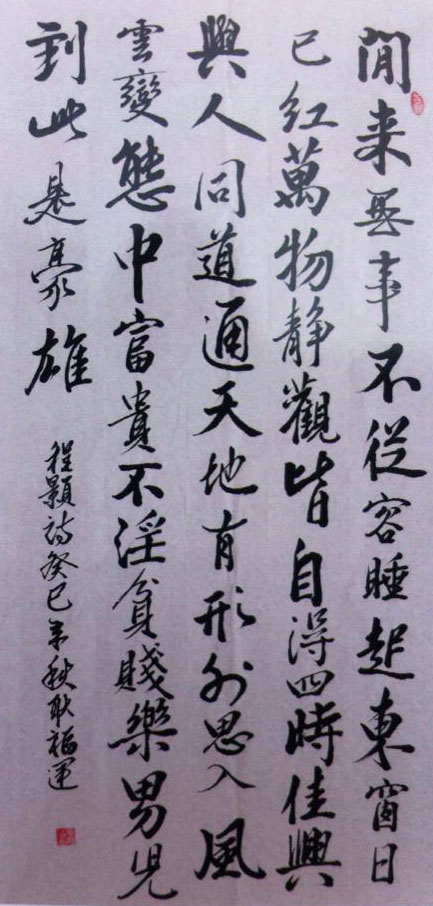 閒来無事不從容睡起東窗日
已紅萬物静觀皆自得四時佳興
與人同道通天地有形外思入風
雲變態中富貴不淫貧賤樂男兒
到此是豪雄
程顥詩癸巳年秋耿福運